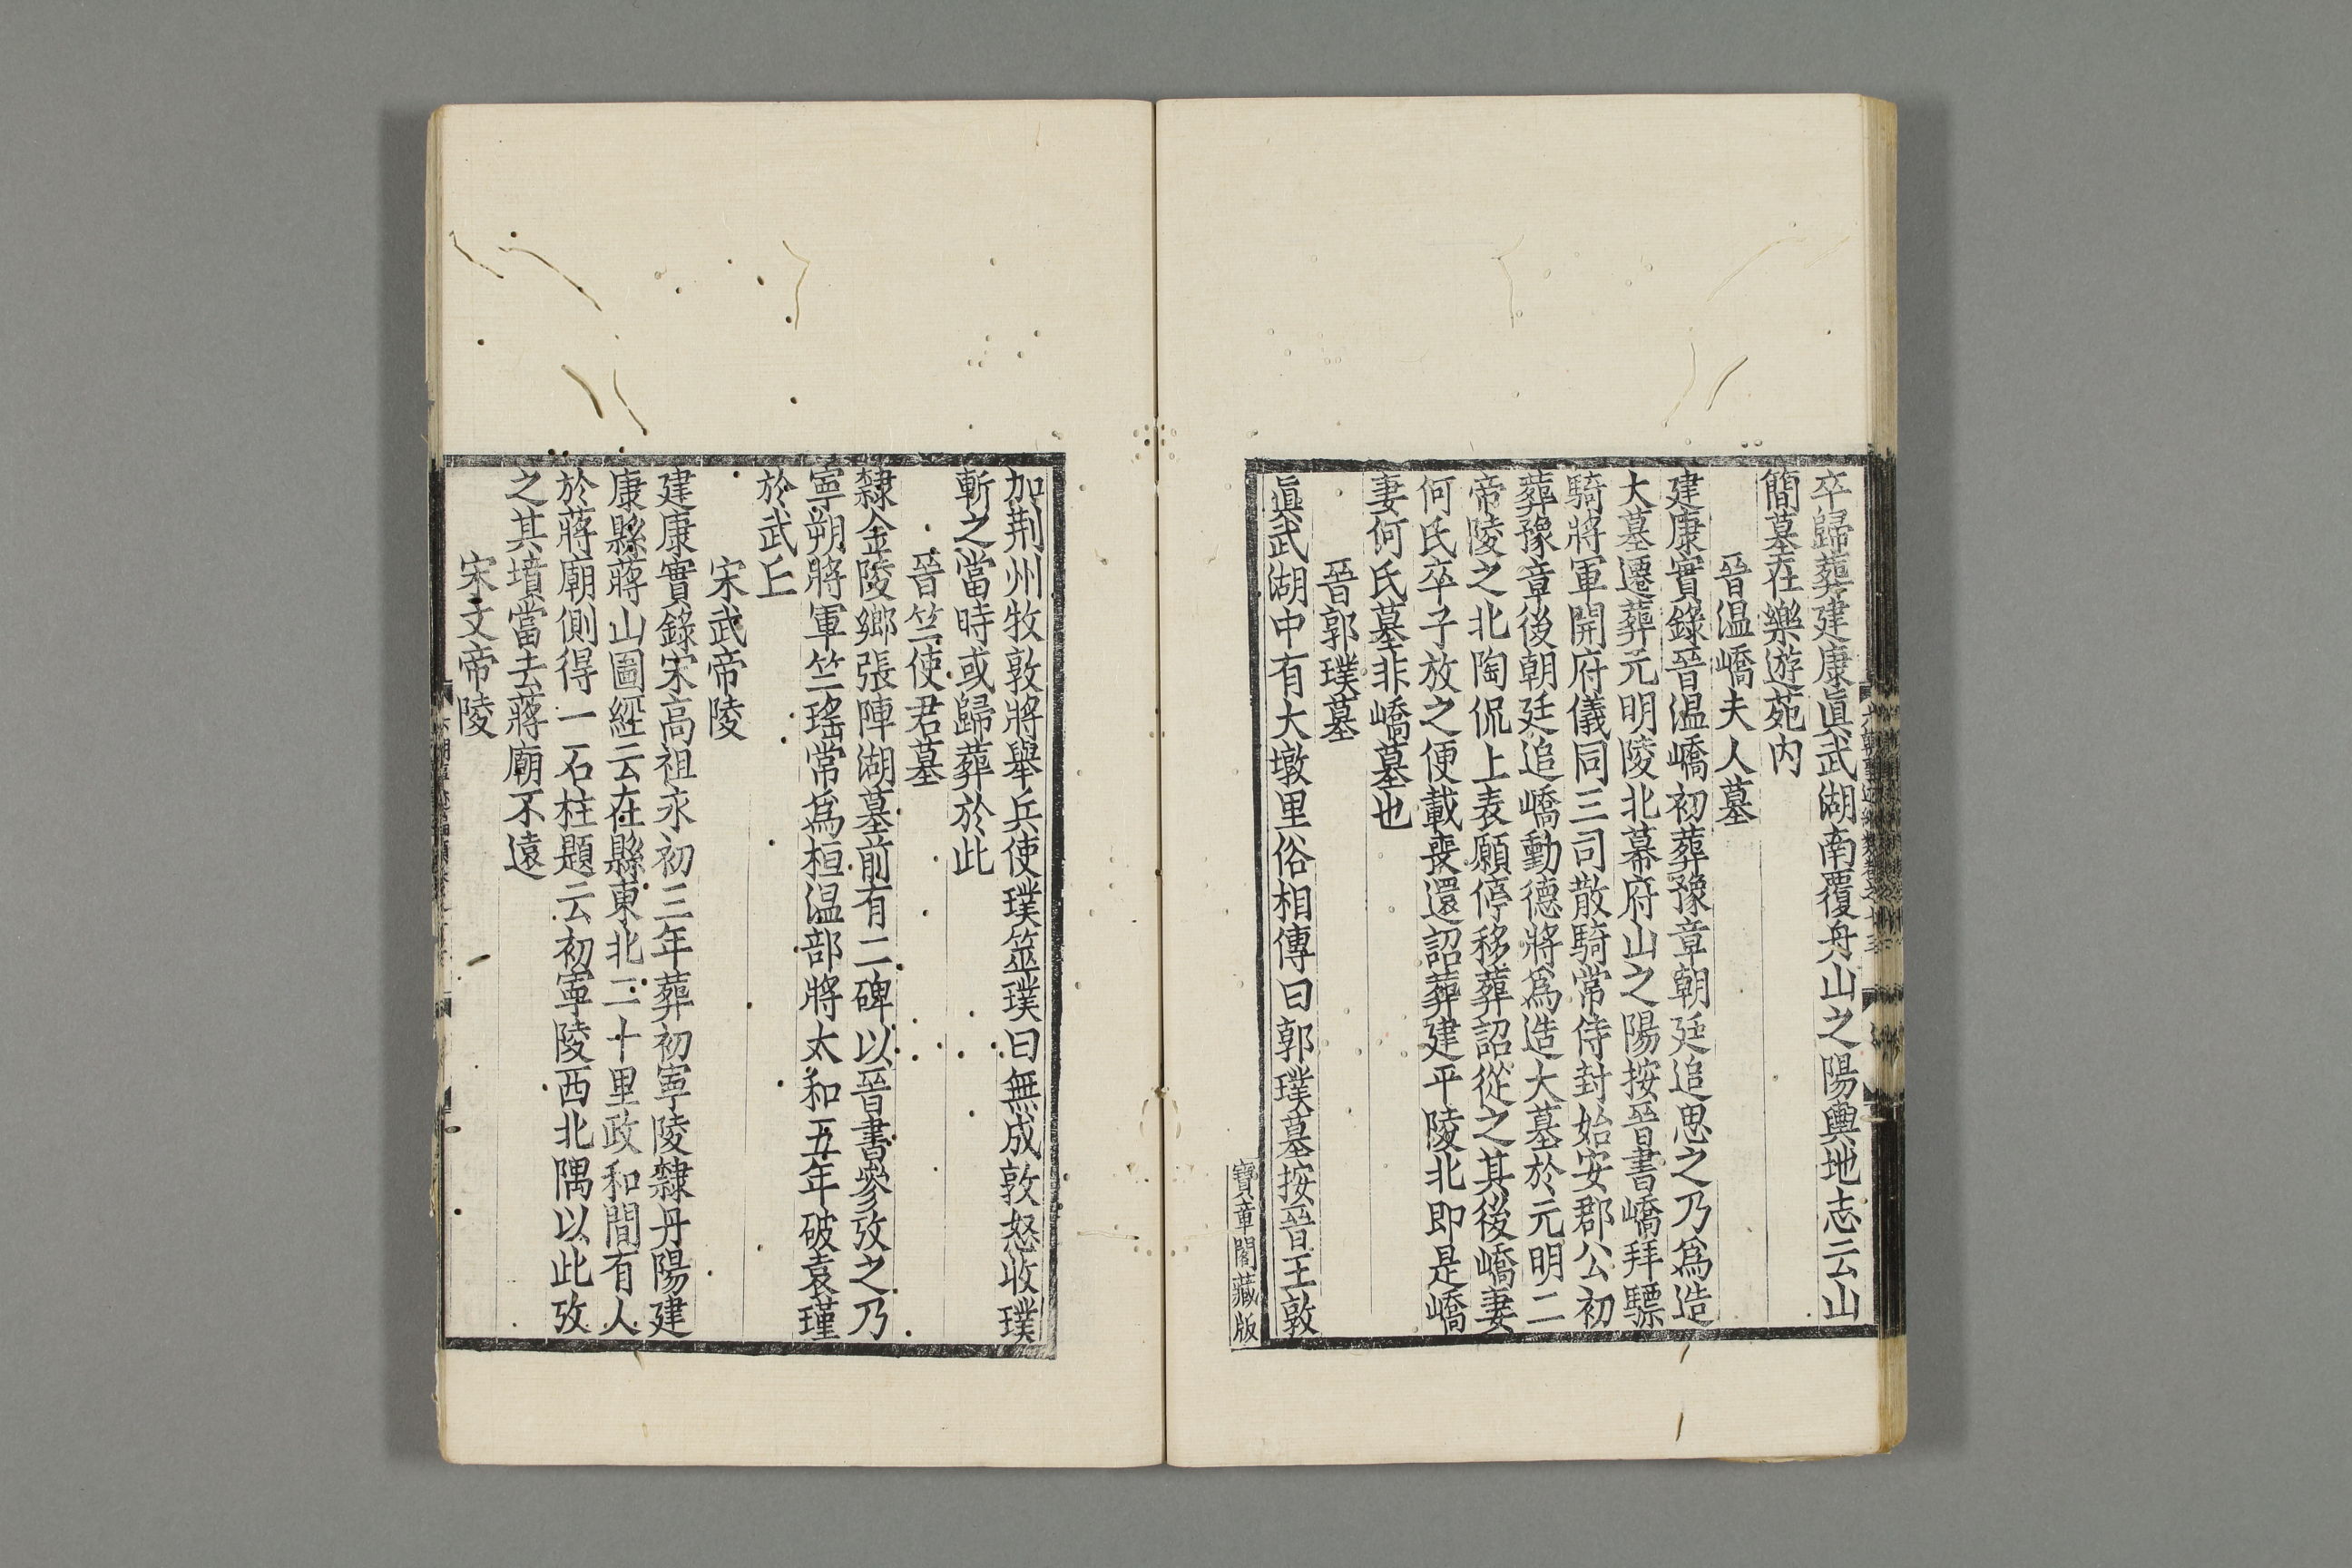 卒歸葬建康眞武湖南覆舟山之陽輿地志云山
簡墓在樂遊苑内
晉温嶠夫人墓
建康實錄晉温嶠初葬豫章朝廷追思之乃爲造
大墓遷葬元明陵北幕府山之陽按晉書嶠拜驃
騎將軍開府儀同三司散騎常侍封始安郡公初
葬豫章後朝廷追嶠勳德將爲造大墓於元明二
帝陵之北陶侃上表願停移葬詔從之其後嶠妻
何氏卒子放之便載喪還詔葬建平陵北即是嶠
妻何氏墓非嶠墓也
晉郭璞墓
眞武湖中有大墩里俗相傳曰郭璞墓按晉王敦
寶章閣藏版
加荆州牧敦將舉兵使璞筮璞曰無成敦怒收璞
斬之當時或歸葬於此
晉竺使君墓
隸金陵鄉張陣湖墓前有二碑以晉書參攷之乃
寧朔將軍竺瑤常爲桓温部將太和五年破袁瑾
於武丘
宋武帝陵
建康實錄宋高祖永初三年葬初寧陵隸丹陽建
康縣蔣山圖經云在縣東北二十里政和間有人
於蔣廟側得一石柱題云初寧陵西北隅以此攷
之其墳當去蔣廟不遠
宋文帝陵